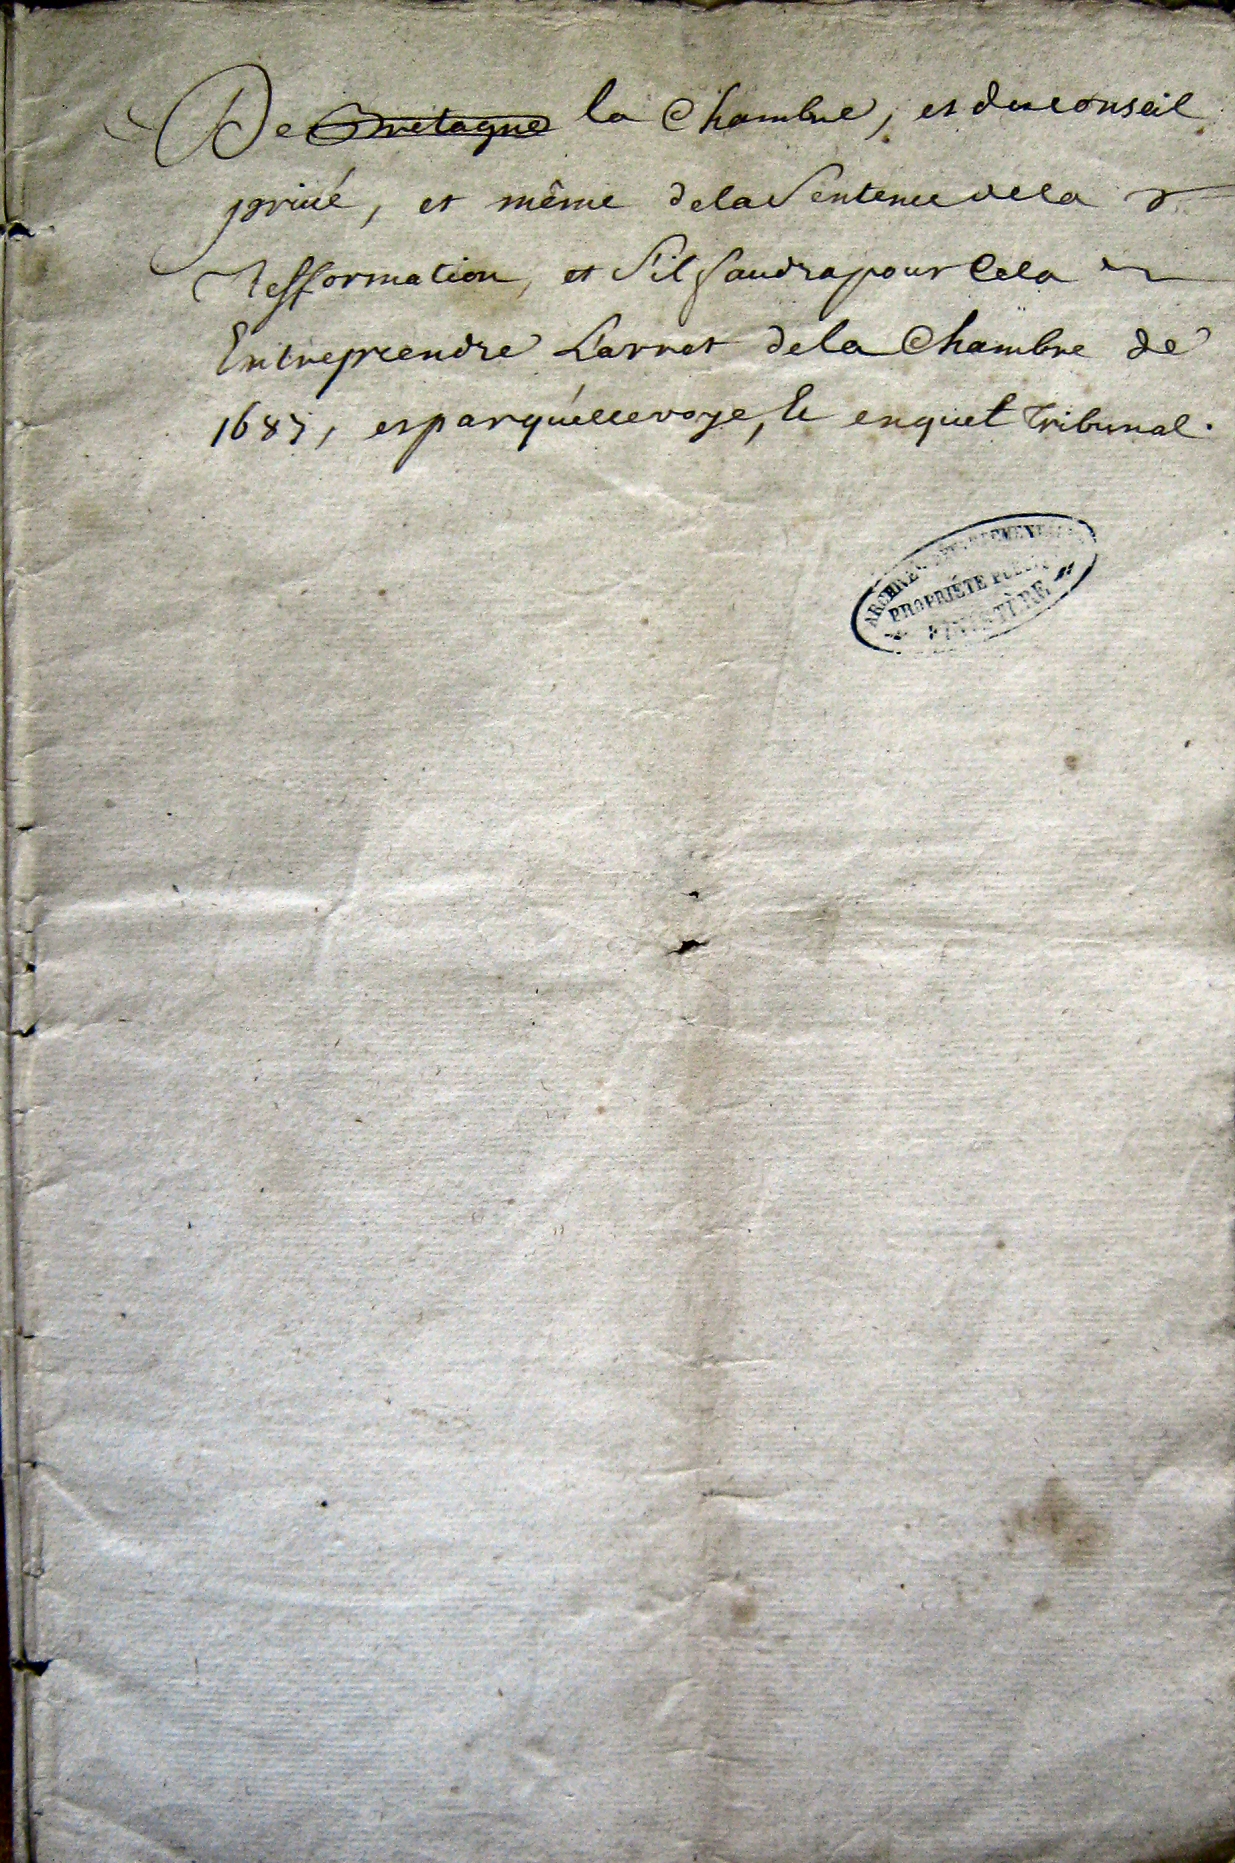 De ~~Bretagne~~ la Chambre, et du conseil
privé, et même de la Sentence de la
Refformation, et s'il faudra pour Cela
Entreprendre L'arret de la Chambre de
1683, et par quelle voye, Et en quel Tribunal.
ARCHIVES DÉPARTEMENTALES
PROPRIÉTÉ PUBLIQUE
FINISTÈRE